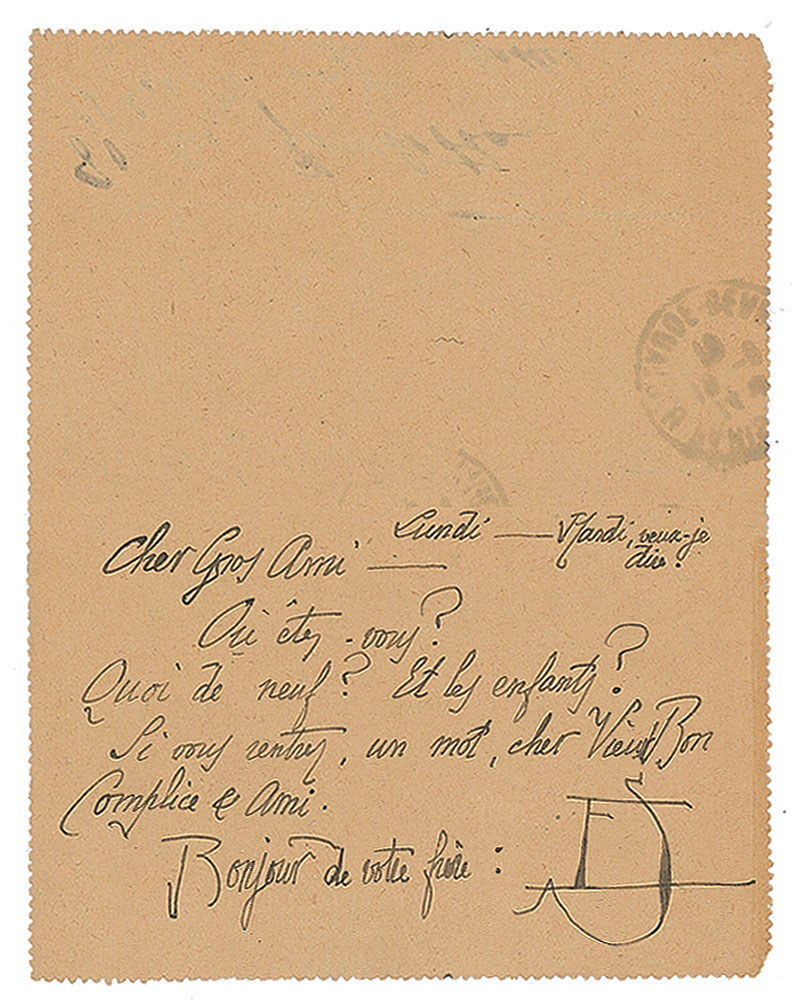 Lundi — Mardi, veux-je
dire!
Cher Gros Ami —
Où êtes-vous?
Quoi de neuf? Et les enfants?
Si vous rentrez, un mot, cher Vieux Bon
Complice & Ami.
Bonjour de votre frère :